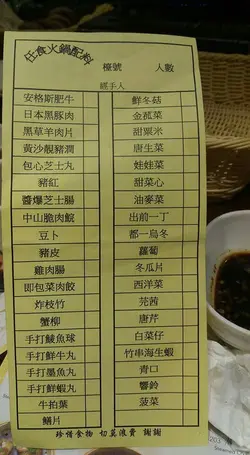 任食火鍋配料
檯號
人數
經手人
安格斯肥牛
日本黑豚肉
黑草羊肉片
黃沙靚豬潤
包心芝士丸
豬紅
醬爆芝士腸
中山脆肉鯇
豆卜
豬皮
雞肉腸
即包菜肉餃
炸枝竹
蟹柳
手打鯪魚球
手打鮮牛丸
手打墨魚丸
手打鮮蝦丸
牛拍葉
鱔片
鮮冬菇
金菰菜
甜粟米
唐生菜
娃娃菜
甜菜心
油麥菜
出前一丁
都一烏冬
蘿蔔
冬瓜片
西洋菜
芫茜
唐芹
白菜仔
竹串海生蝦
青口
響鈴
菠菜
珍惜食物 切莫浪費 謝謝